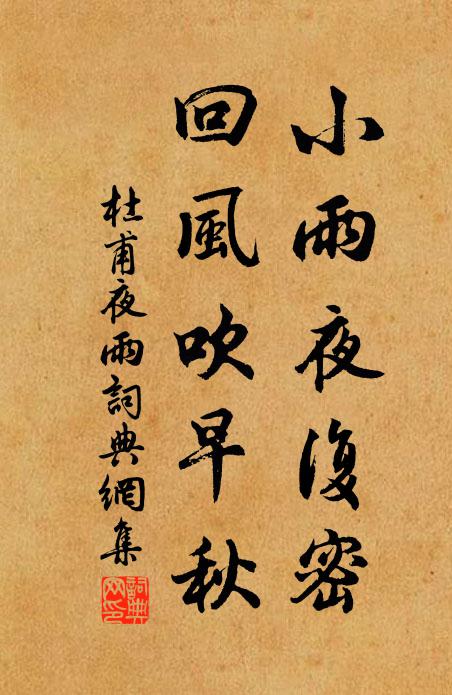 小雨夜復密
回風吹早秋
杜甫夜雨詞典網集
詞典
网印